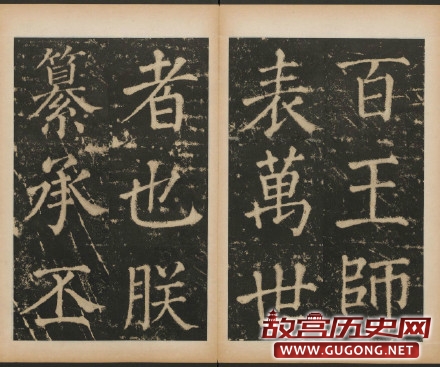 百王師
表萬世
者也朕
纂承丕
故宫历史网
WWW.GUGONG.NET